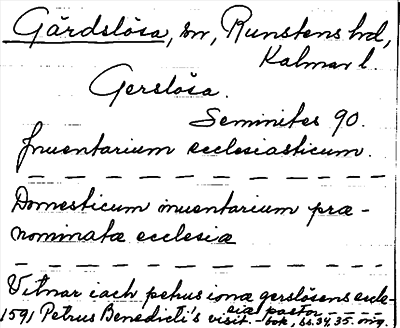 Gärdslösa, sn, Runstens hd,
Kalmar l.
Gerslösa.
Seminites 90.
Inuentarium ecclesiasticum.
Domesticum inuentarium præ-
nominatæ ecclesiæ
Vitnar iach petrus ionæ gerslösens eccle-
siæ pastor
1591 Petrus Benedicti's visit.-bok, ss. 34, 35. orig.